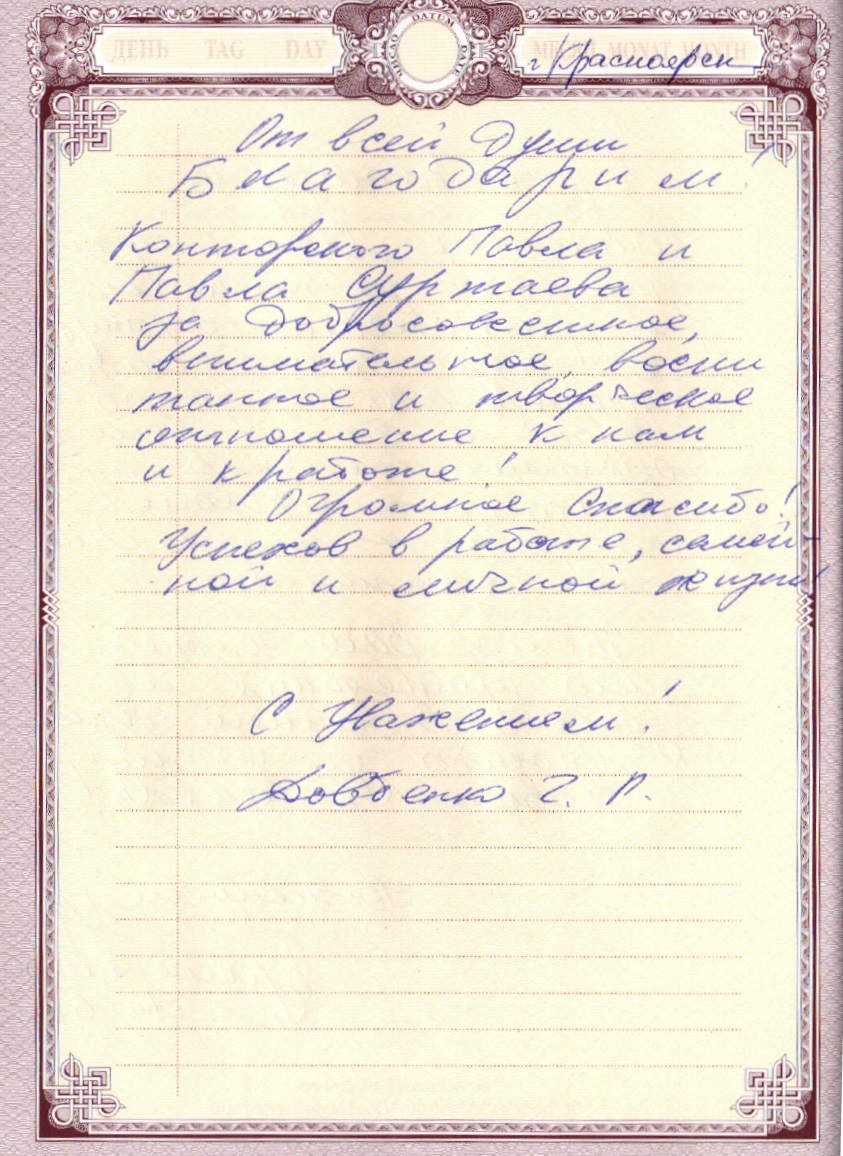 ДЕНЬ TAG DAY DATUM DATE ЧИСЛО МЕСЯЦ MONAT MONTH
г. Красноярск
От всей души
Благодарим!
Конторского Павла и
Павла Суртаева
за добросовестное,
внимательное, воспи
танное и творческое
отношение к нам
и к работе!
Огромное Спасибо!
Успехов в работе, семей-
ной и личной жизни!
С Уважением!
Довбенко Г. П.